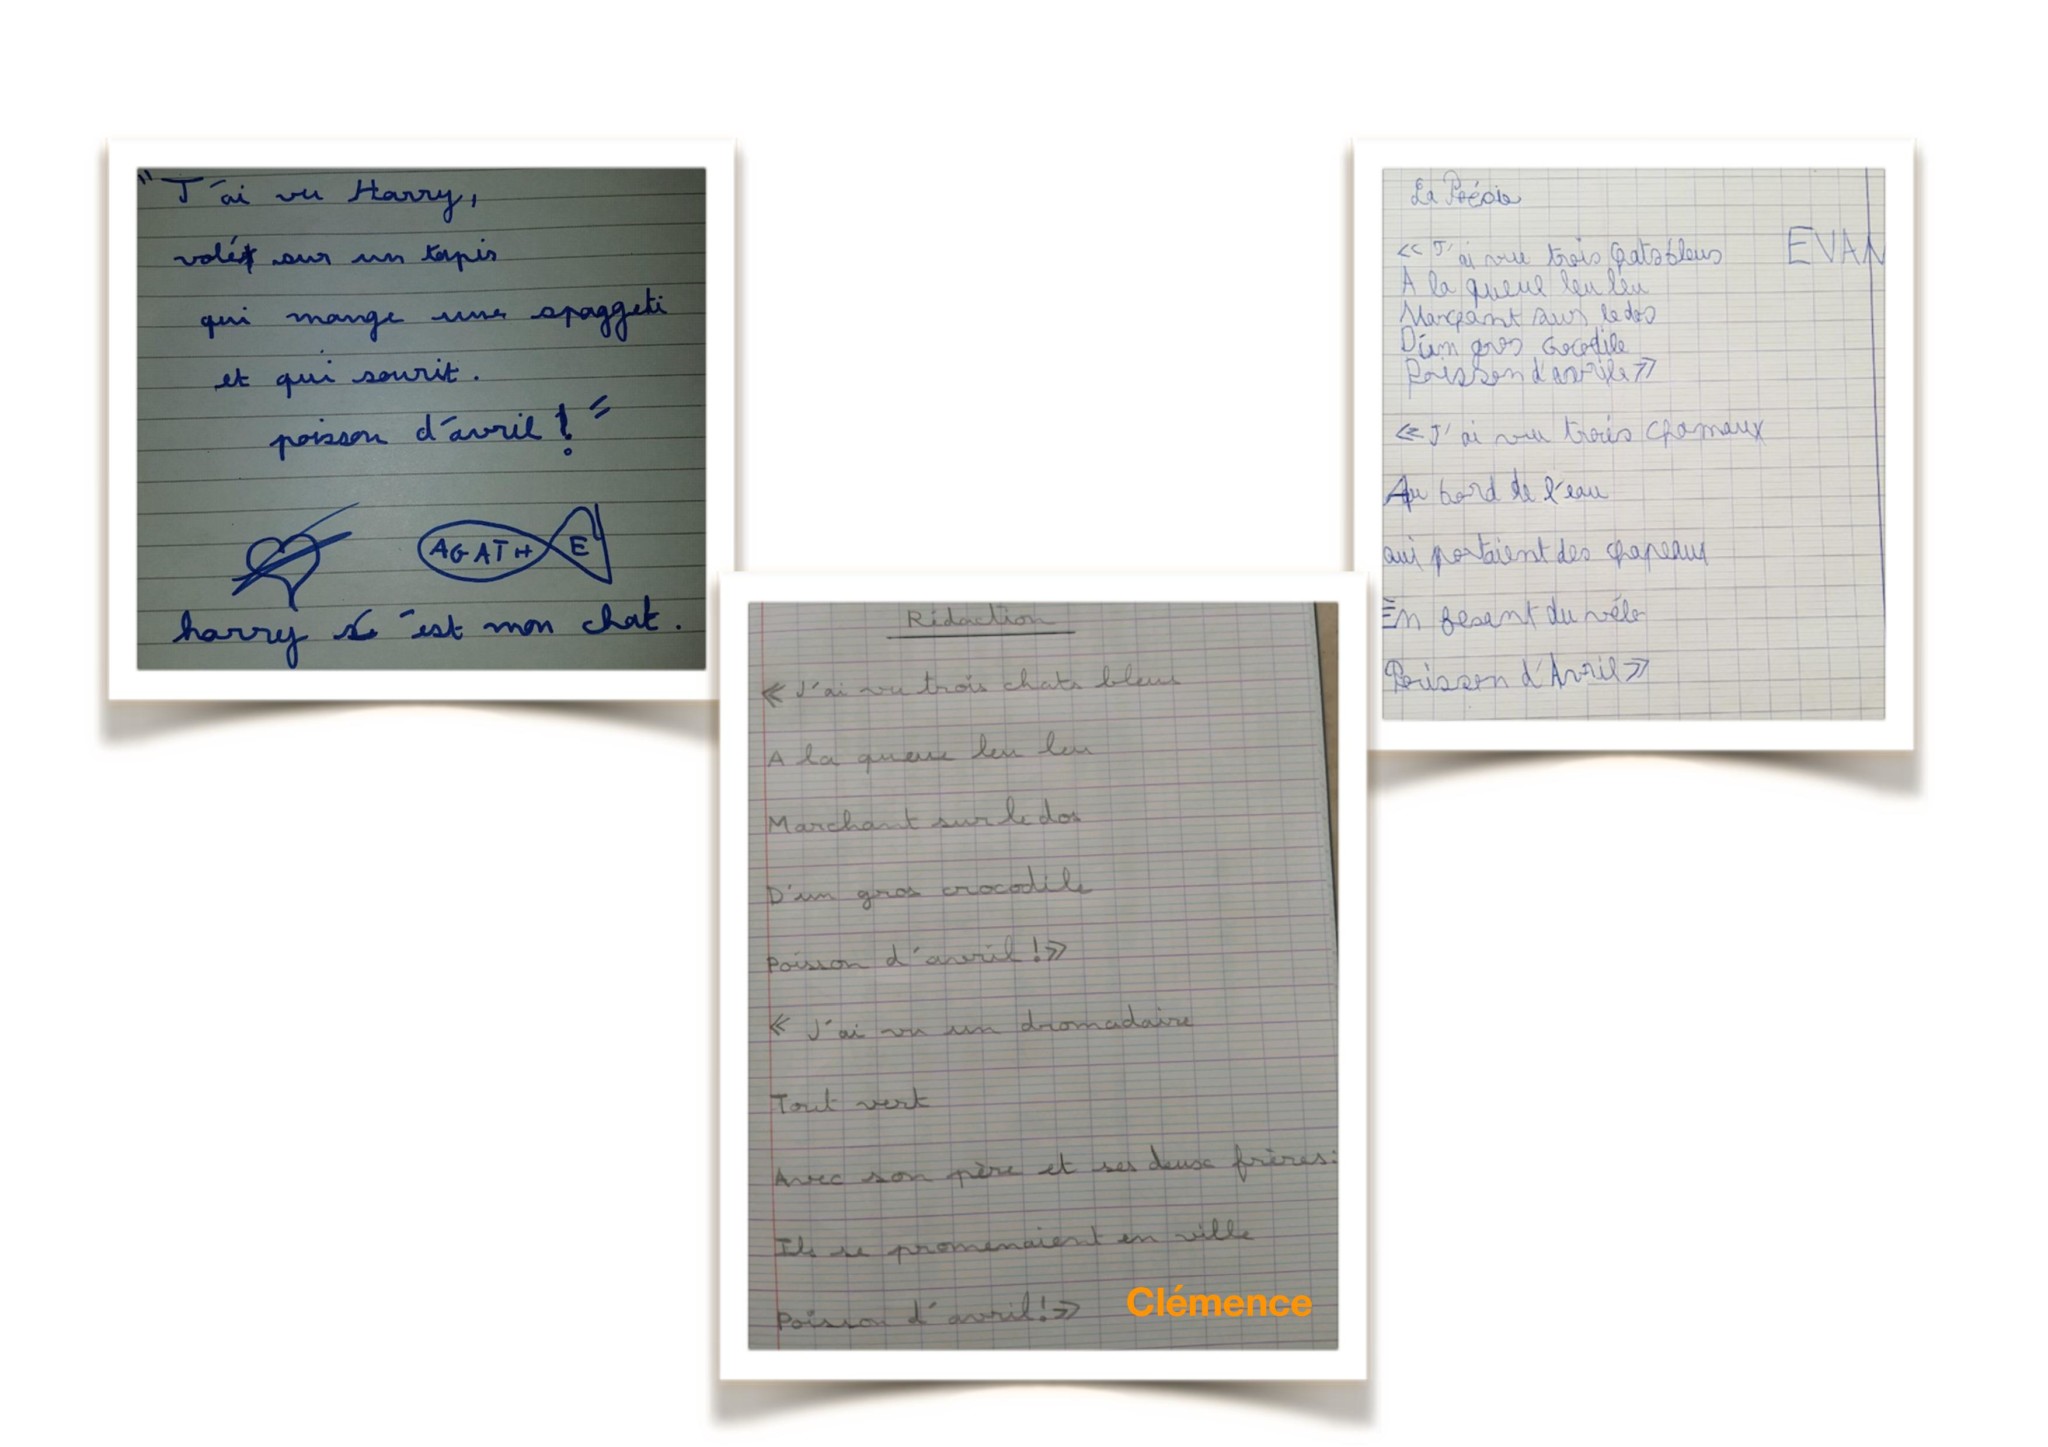 "J'ai vu Harry,
volé sur un tapis
qui mange une spaggeti
et qui sourit.
poisson d'avril ! "
AGATHE
harry c'est mon chat.
La Poésie
EVAN
<< J'ai vu trois chats bleus
A la queue leu leu
Marchant sur le dos
D'un gros crocodile
Poisson d'avrile >>
<< J'ai vu trois chamaux
Au bord de l'eau
qui portaient des chapeaux
En fesant du vélo
Poisson d'Avril >>
Rédaction
<< J'ai vu trois chats bleus
A la queue leu leu
Marchant sur le dos
D'un gros crocodile
Poisson d'avril ! >>
<< J'ai vu un dromadaire
Tout vert
Avec son père et ses deux frères:
Ils se promenaient en ville
Poisson d'avril ! >>
Clémence